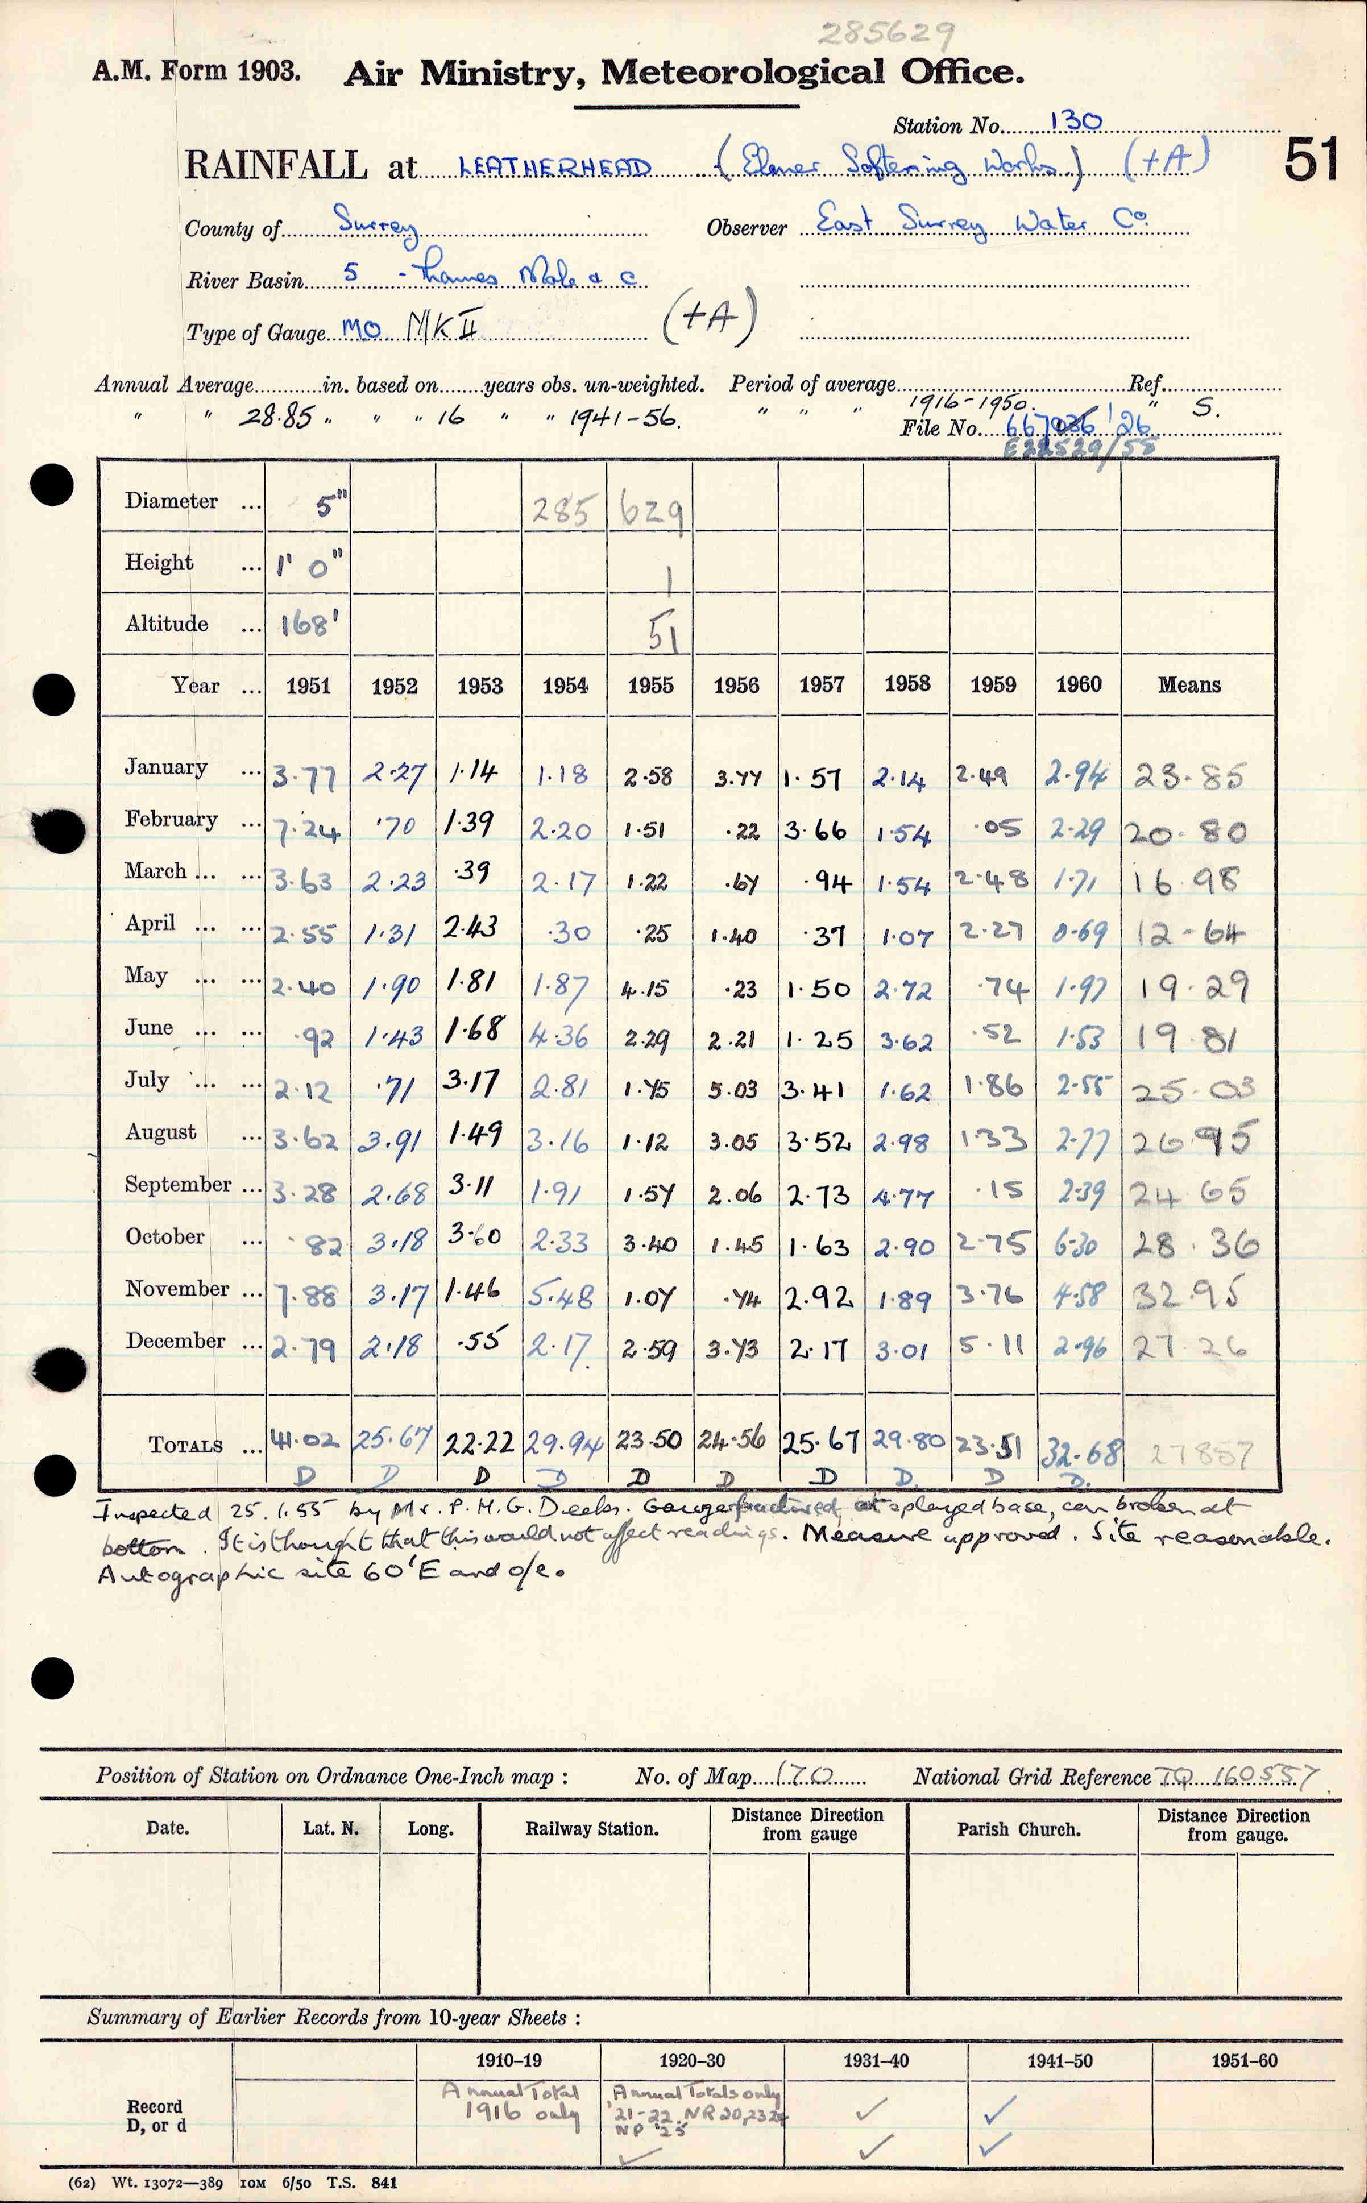 285629
A.M. Form 1903. Air Ministry, Meteorological Office.
Station No. 130
51
RAINFALL at LEATHERHEAD (Elmer Softening Works) (+A)
County of Surrey Observer East Surrey Water Co.
River Basin 5 - Thames Mole & c
Type of Gauge MO MK II (+A)
Annual Average in. based on years obs. un-weighted. Period of average Ref.
" " 28.85 " " " 16 " " 1941-56. " " " 1916-1950. " S.
File No. 667036 '26
E22529/55
Diameter ... 5" 285 629
Height ... 1' 0" 1
Altitude ... 168' 51
Year ... 1951 1952 1953 1954 1955 1956 1957 1958 1959 1960 Means
January ... 3.77 2.27 1.14 1.18 2.58 3.77 1.57 2.14 2.49 2.94 23.85
February ... 7.24 .70 1.39 2.20 1.51 .22 3.66 1.54 .05 2.29 20.80
March ... ... 3.63 2.23 .39 2.17 1.22 .67 .94 1.54 2.48 1.71 16.98
April ... ... 2.55 1.31 2.43 .30 .25 1.40 .37 1.07 2.27 0.69 12-64
May ... ... 2.40 1.90 1.81 1.87 4.15 .23 1.50 2.72 .74 1.97 19.29
June ... ... .92 1.43 1.68 4.36 2.29 2.21 1.25 3.62 .52 1.53 19.81
July ... ... 2.12 .71 3.17 2.81 1.75 5.03 3.41 1.62 1.86 2.55 25.03
August ... 3.62 3.91 1.49 3.16 1.12 3.05 3.52 2.98 1.33 2.77 26.95
September ... 3.28 2.68 3.11 1.91 1.57 2.06 2.73 4.77 .15 2.39 24.65
October ... .82 3.18 3.60 2.33 3.40 1.45 1.63 2.90 2.75 6.30 28.36
November ... 7.88 3.17 1.46 5.48 1.07 .74 2.92 1.89 3.76 4.58 32.95
December ... 2.79 2.18 .55 2.17 2.59 3.73 2.17 3.01 5.11 2.96 27.26
TOTALS ... 41.02 25.67 22.22 29.94 23.50 24.56 25.67 29.80 23.51 32.68 27857
D D D D D D D D. D D.
Inspected 25.1.55 by Mr. P.H.G. Deeks. Gauge fractured at splayed base, can broken at
bottom. It is thought that this would not affect readings. Measure approved. Site reasonable.
Autographic site 60' E and o/c.
Position of Station on Ordnance One-Inch map : No. of Map 170 National Grid Reference TQ 160557
Date. Lat. N. Long. Railway Station. Distance Direction from gauge Parish Church. Distance Direction from gauge.
Summary of Earlier Records from 10-year Sheets :
1910–19 1920–30 1931–40 1941–50 1951–60
Record D, or d
Annual Total 1916 only
Annual Totals only '21-22. NR 20,23 24 NP '25
(62) Wt. 13072—389 10M 6/50 T.S. 841